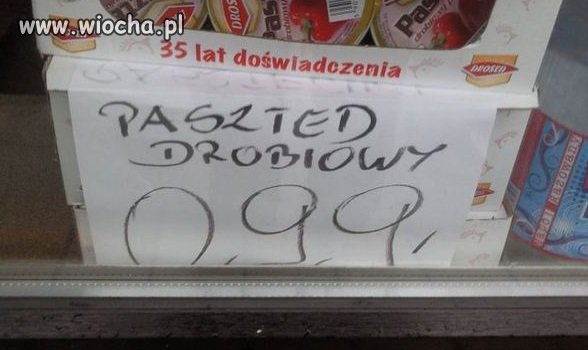 www.wiocha.pl
DROSED
Pasz
drobiowy
35 lat doświadczenia
DROSED
PASZTED
DROBIOWY
0,99,